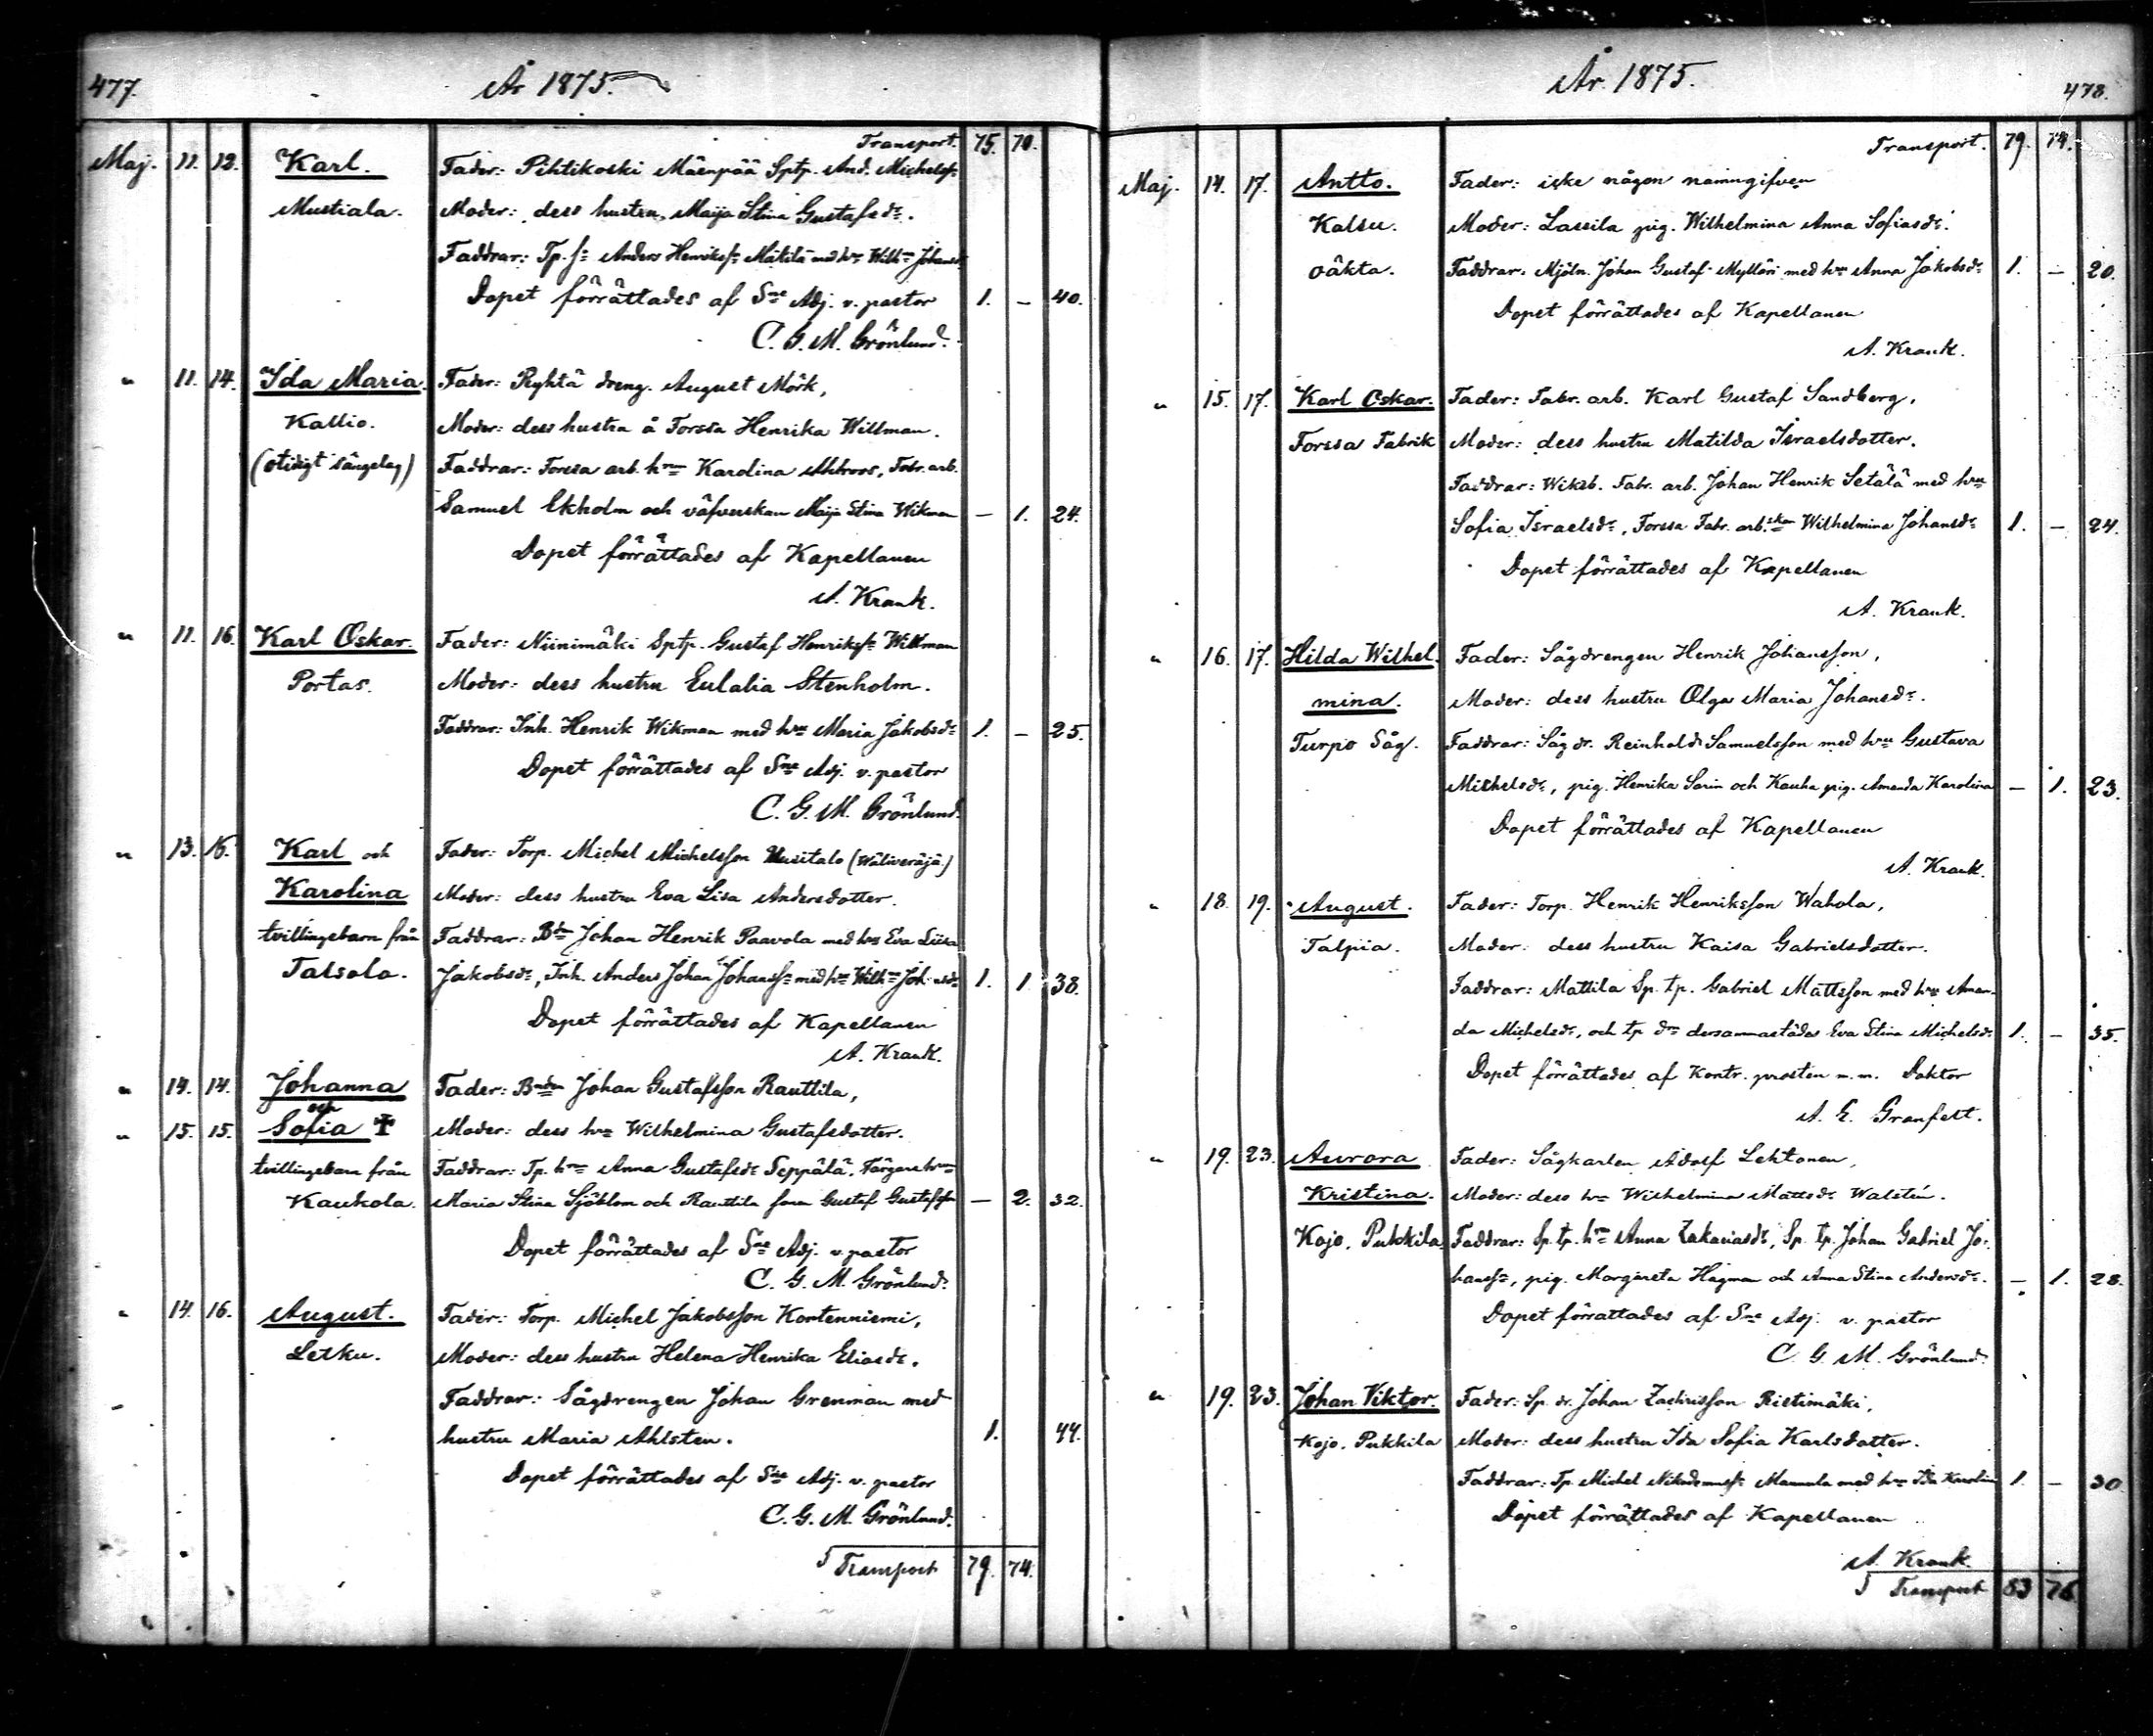 477.
År 1875.
Transport. 75. 70.
Maj. 11. 12. Karl. Fader: Pihtikoski Mäenpää Sptp. And. Michelsſn
Mustiala. Moder: dess hustru, Maija Stina Gustafsdr.
Faddrar: Tp. sn Anders Henriksſn Mätilä med hru Wilhna Johansdr
Dopet förrättades af Sne Adj. v. pastor 1. — 40.
C. G. M. Grönlund.
" 11. 14. Ida Maria. Fader: Ryhtä dreng. August Mörk,
Kallio. Moder: dess hustru å Forssa Henrika Willman.
(otidigt sängelag) Faddrar: Forssa arb. hru Karolina Ahlroos, Fabr. arb.
Samuel Ekholm och väfverskan Maija Stina Wikman — 1. 24.
Dopet förrättades af Kapellanen
A. Krank.
" 11. 16. Karl Oskar. Fader: Niinimäki Sptp. Gustaf Henriksſn Willman
Portas. Moder: dess hustru Eulalia Stenholm.
Faddrar: Inh. Henrik Wikman med hru Maria Jakobsdr 1. — 25.
Dopet förrättades af Sne Adj. v. pastor
C. G. M. Grönlund.
" 13. 16. Karl och Fader: Torp. Michel Michelsſon Uusitalo (Wäliveräjä.)
Karolina Moder: dess hustru Eva Lisa Andersdotter.
tvillingebarn från Faddrar: Bdn Johan Henrik Paavola med hru Eva Liisa
Talsola. Jakobsdr, Inh. Anders Johan Johansſn med hru Wilhna Joh. 1. 1 38.
Dopet förrättades af Kapellanen
A. Krank.
" 14. 14. Johanna Fader: Bnden Johan Gustafsſon Rauttila,
och
" 15. 15. Sofia ✝ Moder: dess hru Wilhelmina Gustafsdotter.
tvillingebarn från Faddrar: Tp. hru Anna Gustafsdr Seppälä, Färgare hru
Kaukola. Maria Stina Sjöblom och Rauttila sonen Gustaf Gustafsſon — 2. 32.
Dopet förrättades af Sne Adj. v. pastor
C. G. M. Grönlund.
" 14. 16. August. Fader: Torp. Michel Jakobsſon Kortenniemi,
Letku. Moder: dess hustru Helena Henrika Eliasdr.
Faddrar: Sågdrengen Johan Grenman med
hustru Maria Ahlsten. 1. 44.
Dopet förrättades af Sne Adj. v. pastor
C. G. M. Grönlund.
Transport 79. 74.
År 1875.
478.
Transport. 79. 74.
Maj. 14. 17. Antto. Fader: icke någon namngifven
Kalsu. Moder: Lassila pig. Wilhelmina Anna Sofiasdr.
oäkta. Faddrar: Mjöln. Johan Gustaf Mylläri med hru Anna Jakobsdr 1. — 20.
Dopet förrättades af Kapellanen
A. Krank.
" 15. 17. Karl Oskar. Fader: Fabr. arb. Karl Gustaf Sandberg,
Forssa Fabrik Moder: dess hustru Matilda Israelsdotter.
Faddrar: Wiksb. Fabr. arb. Johan Henrik Setälä med hru
Sofia Israelsdr, Forssa Fabr. arb.skan Wilhelmina Johansdr 1. — 24.
Dopet förrättades af Kapellanen
A. Krank.
" 16. 17. Hilda Wilhel- Fader: Sågdrengen Henrik Johansſon,
mina. Moder: dess hustru Olga Maria Johansdr.
Turpo Såg. Faddrar: Såg dr. Reinhold Samuelsſon med hru Gustava
Michelsdr, pig. Henrika Sarin och Kauha pig. Amanda Karolina — 1. 23.
Dopet förrättades af Kapellanen
A. Krank.
" 18. 19. August. Fader: Torp. Henrik Henriksſon Wahola,
Talpia. Moder: dess hustru Kaisa Gabrielsdotter.
Faddrar: Mattila Sp. tp. Gabriel Mattsſon med hru Aman-
da Michelsdr, och tp dr dersammastädes Eva Stina Michelsdr 1. — 35.
Dopet förrättades af Kontr. prosten m.m. Doktor
A. E. Granfelt.
" 19. 23. Aurora Fader: Sågkarlen Adolf Lehtonen,
Kristina. Moder: dess hru Wilhelmina Mattsdr Walstén.
Kojo, Pukkila. Faddrar: Sp. tp. hru Anna Zakariasdr, Sp. tp. Johan Gabriel Jo-
hansſn, pig. Margareta Hagman och Anna Stina Andersdr. — 1. 28.
Dopet förrättades af Sne Adj. v. pastor
C. G. M. Grönlund.
" 19. 23. Johan Viktor. Fader: Sp. dr. Johan Zachrisſon Ristimäki,
Kojo. Pukkila Moder: dess hustru Ida Sofia Karlsdotter.
Faddrar: Tp. Michel Nikodemusſn Mannela med hru Ida Karolina 1. — 30
Dopet förrättades af Kapellanen
A. Krank.
Transport 83 76